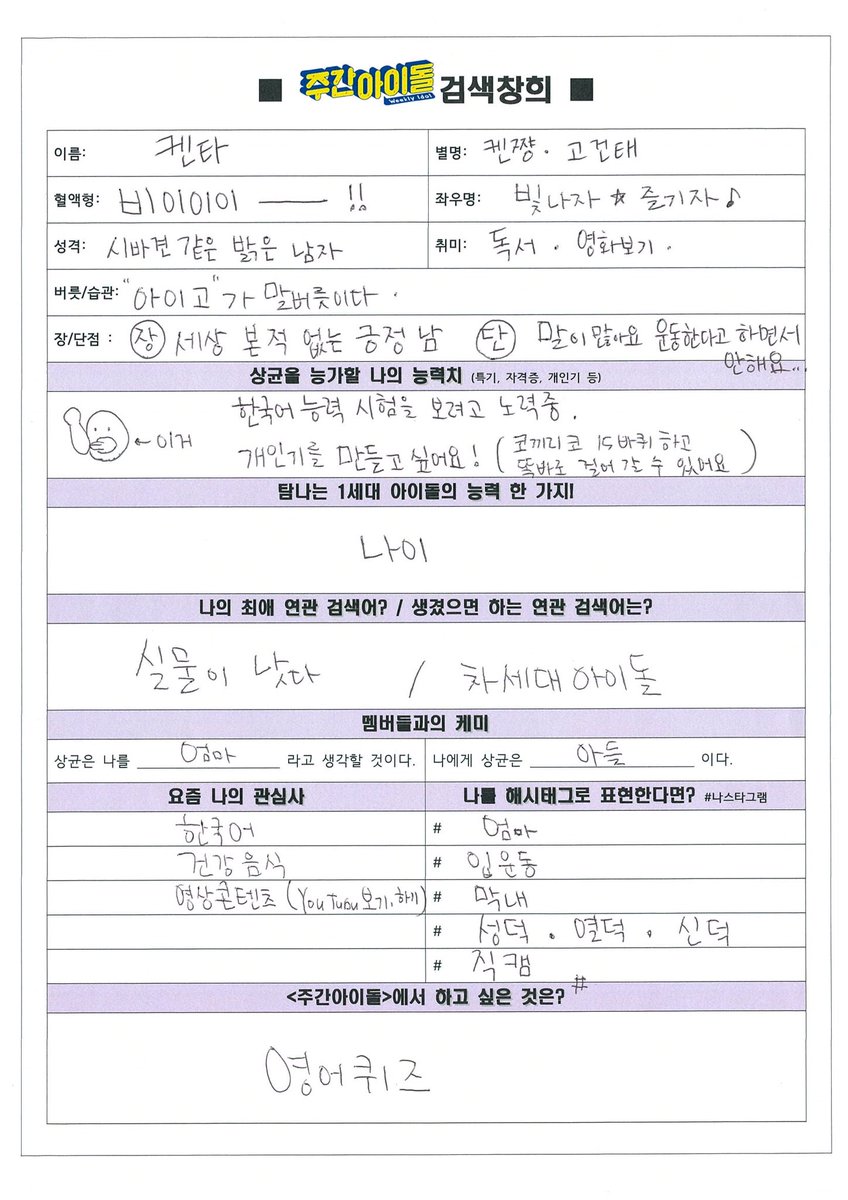 ■ 주간아이돌 Weekly Idol 검색창희 ■
이름: 켄타
별명: 켄쨩. 고건태
혈액형: 비이이이 —— !!
좌우명: 빛나자 ☆ 즐기자♪
성격: 시바견 같은 밝은 남자
취미: 독서. 영화보기.
버릇/습관: "아이고"가 말버릇이다.
장/단점 : 장 세상 본적 없는 긍정 남 단 말이 많아요 운동한다고 하면서
안해요...
상균을 능가할 나의 능력치 (특기, 자격증, 개인기 등)
한국어 능력 시험을 보려고 노력중.
←이거
개인기를 만들고 싶어요! (코끼리코 15바퀴 하고
똑바로 걸어 갈 수 있어요)
탐나는 1세대 아이돌의 능력 한 가지!
나이
나의 최애 연관 검색어? / 생겼으면 하는 연관 검색어는?
실물이 낫다 / 차세대 아이돌
멤버들과의 케미
상균은 나를 엄마 라고 생각할 것이다.
나에게 상균은 아들 이다.
요즘 나의 관심사
한국어
건강음식
영상콘텐츠 (YouTubu보기, 하기)
나를 해시태그로 표현한다면? #나스타그램
# 엄마
# 입운동
# 막내
# 성덕. 열덕. 신덕
# 직캠
#
<주간아이돌>에서 하고 싶은 것은?
영어퀴즈